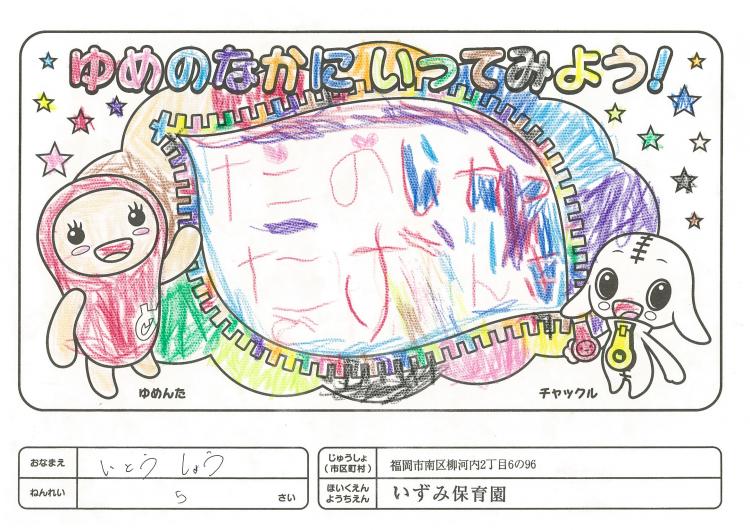 ゆめのなかにいってみよう!
ゆめんた
チャックル
おなまえ いとう しょう
ねんれい 5 さい
じゅうしょ
(市区町村)
福岡市南区柳河内2丁目6の96
ほいくえん
ようちえん
いずみ保育園